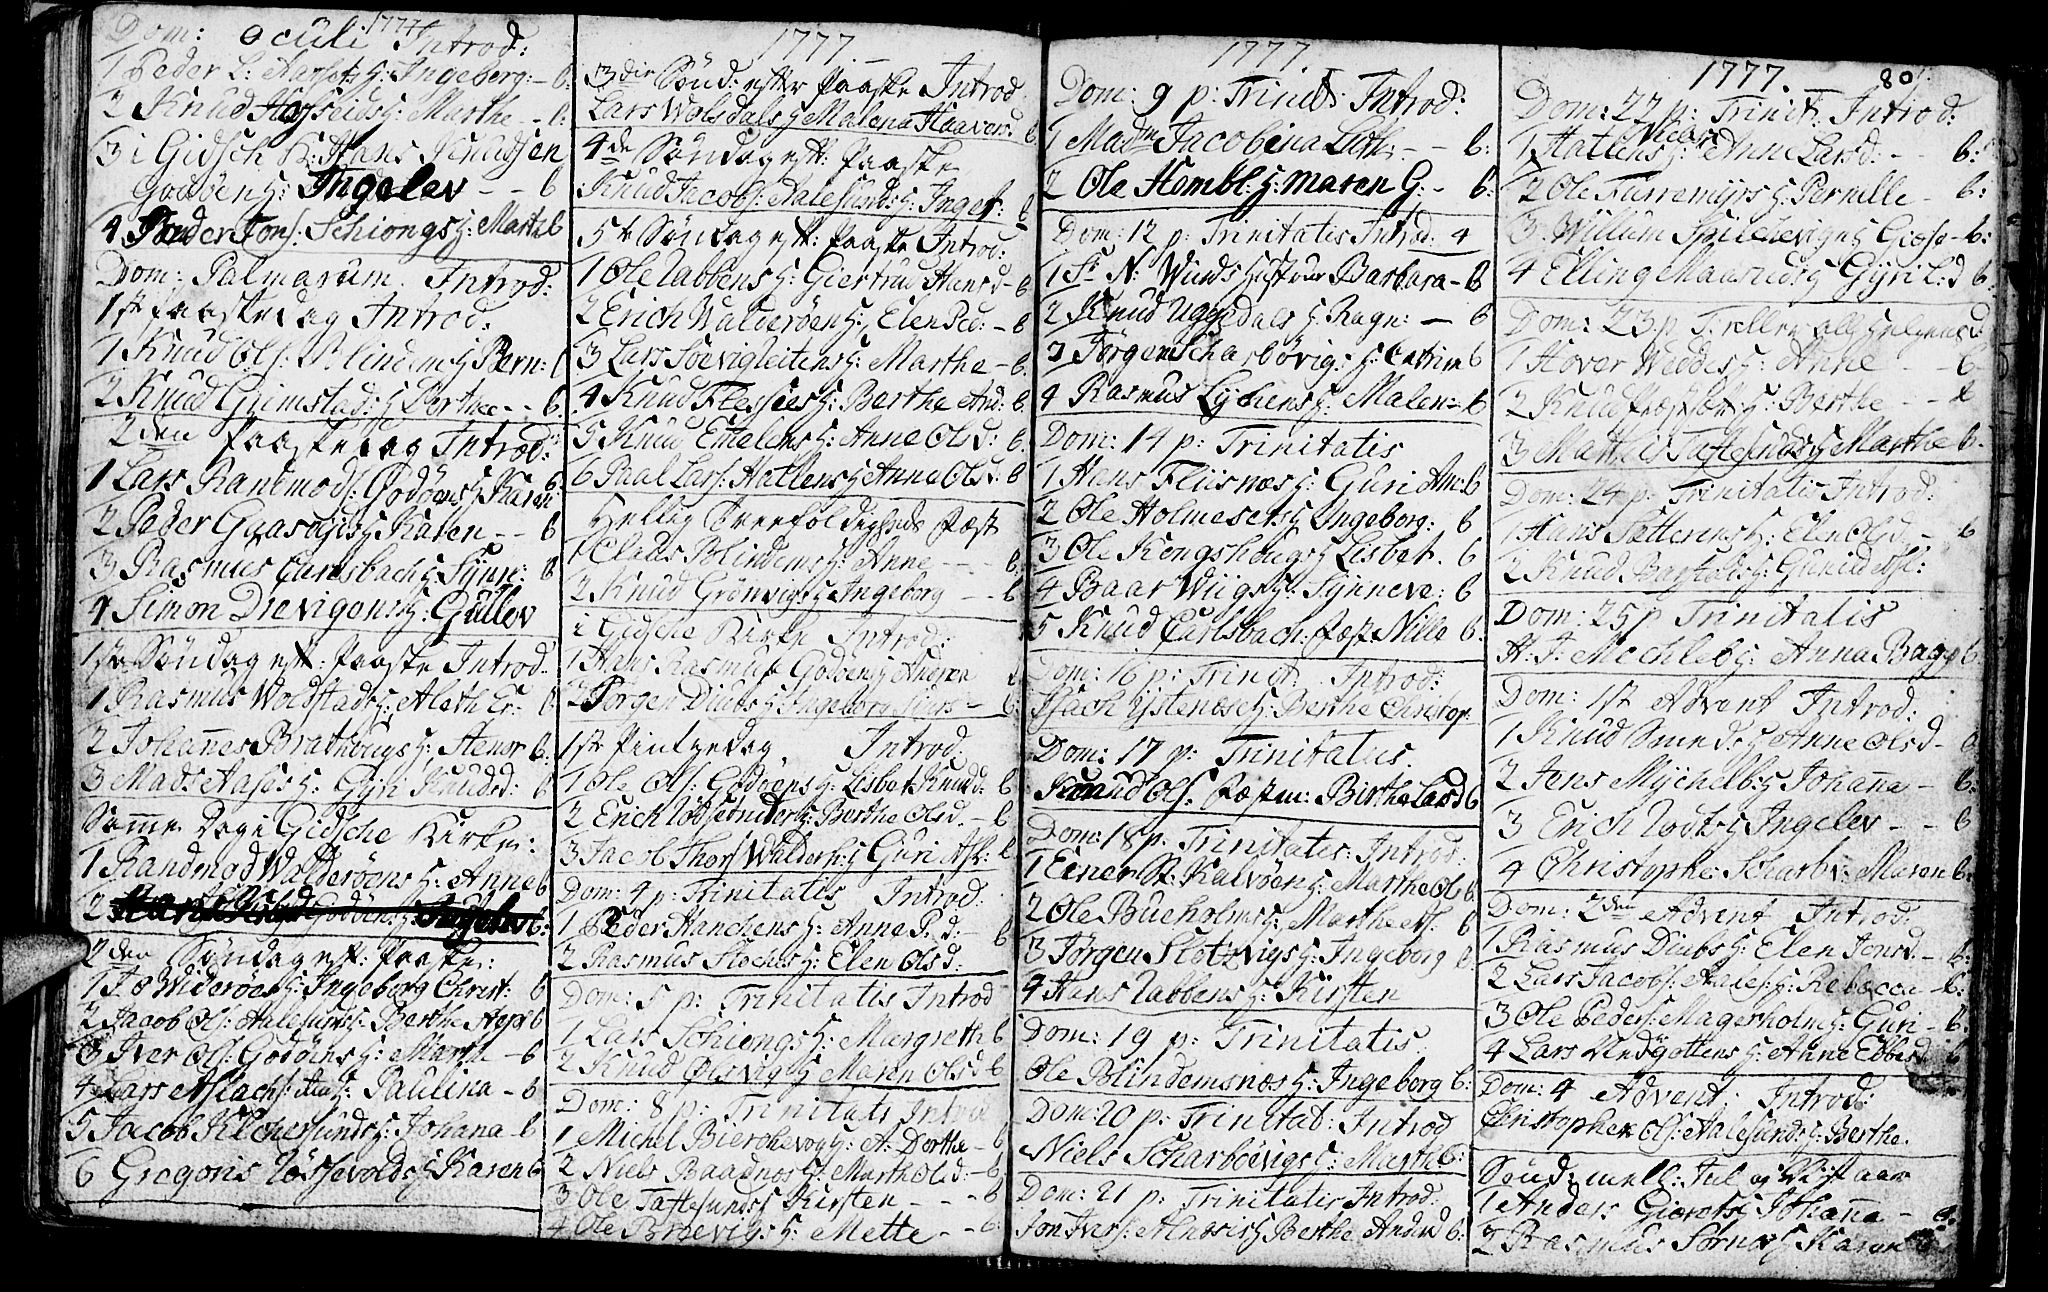 Dom: Oculi 1777 Introd:
1 Peder L: Aarsets H: Ingeberg: - b:
2 Knud Hafseids H: Marthe - - b:
3 i Gidsch K: Hans Knudsen
Godöens H: Ingelev - - b
4 Peder Jons: Schiongs H: Marthe b
Dom: Palmarum. Introd:
1ste Paaskedag Introd:
1 Knud Ols: Blindem H Bern: b
2 Knud Grimstads H Berthe - - b.
2den Paaskedag Introd:
1 Lars Randmods: Godöens H Karen b
2 Peder Gaaseids H Karen - - b
3 Rasmus Carlsbach H Synn: b
4 Simon Drevigens H: Gullev
1ste Söndag eft: Paaske Introd:
1 Rasmus Woldstads H: Aleth Er: b
2 Johanes Brathougs H: Henor b.
3 Mads Aases H: Gyri Knudsd: b
Same Dag i Gidsche Kirke:
1 Randmod Walderöens H: Anne b
2 Godöens H: Ingebor b:
2den Söndag eft: Paaske:
1 Wideröes H: Ingeborg Christ: b
2 Jacob Ols: Aalesunds H: Berthe b
3 Iver Ols: Godöens H: Marthe - b
4 Lars Aslachs: H: Paulina - b
5 Jacob Kilchersunds H: Johana - b
6 Gregoris Rödsevolds H Karen b
1777
3die Sönd: efter Paaske Introd
Lars Wolsdals H Malena Haaversd: b
4de Söndag eft: Paaske
Knud Jacobs: Aalesunds H: Inger: b
5te Söndag eft: Paaske Introd:
1 Ole Nabbens H: Giertrud Hansd - b
2 Erich Walderöens H: Elen Ped: - b
3 Lars Soevigleitens H: Marthe - b.
4 Knud Flessies H: Berthe And: b.
5 Knud Emelems H: Anne Olsd: b.
6 Paal Lars: Hatlens H Anne Olsd: b
Hellig Treefoldigheds Fæst
1 Claus Blindems H: Anne - - b.
2 Knud Grönvigs H Ingeborg - - b
i Gidsche Kirke Introd:
1 Hans Rasmus: Godöens H Andrea b
2 Jörgen Diubs H Ingeborg - b
1ste Pintzedag Introd:
1 Ole Ols: Godöens H: Lisbet Knudsd: b
2 Erich H: Berthe Olsd. - b
3 Jacob Thors: Walders: H Guri Asl: b
Dom: 4 p: Trinitatis Introd:
1 Peder Hanchens H: Anne P:d: - b
2 Rasmus Stochs H: Elen Olsd:
Dom: 5 p: Trinitatis Introd
1 Lars Schiongs H: Margrethe b
2 Knud Örsvigs H Maren Olsd b
Dom: 8 p: Trinitatis Introd
1 Michel Bierchevogs H: A: Dorthe - b
2 Niels Baadnes H: Marth Olsd: - b
3 Ole Taftesunds H Kirsten - - - b
4 Ole Broevigs H: Mette - - b:
1777.
Dom: 9 p: Trinit: Introd:
1 Madm Jacobina Luth: - - b:
2 Ole Homble H: Maren G: - b:
Dom: 12 p: Trinitatis Introd: 4
1 Sr N: Winds Hustrue Barbara - b
2 Knud Uggedals H: Ragn: - b
3 Jörgen Scharbövig: H: Catrine b
4 Rasmus Lychens H: Malen: - b
Dom: 14 p: Trinitatis
1 Hans Fliisnæs H: Guri An: b
2 Ole Holmesets H Ingeborg: b
3 Ole Kongshougs H Lisbet. b
4 Baar Wiigs H: Synneva: b
5 Knud Carlsbach: Fæst Nilla b:
Dom: 16 p: Trinit: Introd:
Isach Ystenæs H: Berthe Christop:
Dom: 17 p: Trinitatis.
Knud Ols: Fæstm: Birthe Larsd b
Dom: 18 p: Trinitatis: Introd:
1 Einer R: Kalvöens H: Marthe Ol b:
2 Ole Bueholms H: Marthe As: b
3 Jörgen Slotzvigs H: Ingeborg b.
4 Hans Nabbens H: Kirsten
Dom: 19 p: Trinitatis
Ole Blindemsnæs H: Ingeborg b:
Dom 20 p: Trinitat: Introd
Niels Scharbövigs H: Marthe b:
Dom: 21 p: Trinitatis Introd:
Jon Ivers: Alnæs H Berthe Andersd b:
1777. 80
Dom: 22 p: Trinit: Introd:
1 Hatlens H: Anne Larsd: - - b:
2 Ole Furremyrs H: Pernille - b:
3 Willum Spilchevigs H Giæse - b:
4 Elling Maaseids H Gyri L:d b:
Dom: 23 p T: eller allehelgensd:
1 Hover Weddes H Anne - - b
2 Knud H: Berthe - - b
3 Mattis Taftesunds H Marthe b.
Dom: 24 p: Trinitatis Introd:
1 Hans Sætterens H: Elen Olsd: - b
2 Knud Barstads H: Gunild Asl:
Dom: 25 p Trinitatis
H. J: Mechleb H: Anna Bagge b
Dom: 1ste Advent Introd:
1 Knud H Anne Olsd - b
2 Jens Mychelb: H Johana - b:
3 Erich H Ingelev - - b
4 Christophe: Scharb: Maren b.
Dom: 2den Advent Introd:
1 Rasmus Diubs H: Elen Jonsd. - b:
2 Lars Jacobs: Aales: H: Rebecca - b:
3 Ole Peders: Magerholms H: Guri - b.
4 Lars Undgöttens H: Anne Ebbesd b
Dom: 4 Advent: Introd:
Christophen Ols: Aalesunds H: Berthe.
Sönd: mell: Jul og Nyt aar
1 Anders Giærets H Johana - b.
2 Rasmus H Karen b